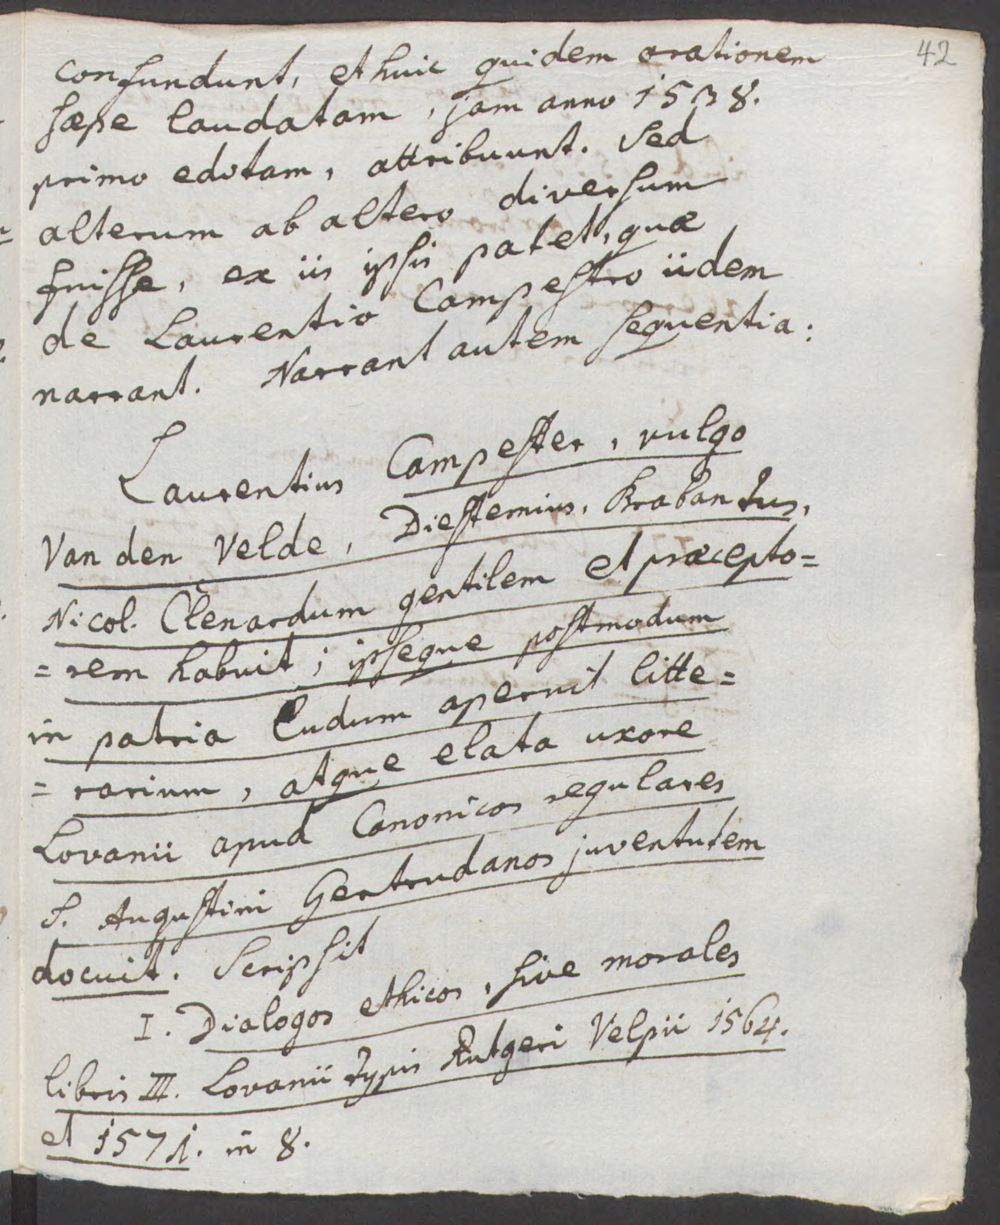 42
confundunt, et huic quidem orationem
sæpe laudatam, jam anno 1538.
primo editam, attribuunt. Sed
alterum ab altero diversum
fuisse, ex iis ipsis patet, quæ
de Laurentio Campestro iidem
narrant. Narrant autem sequentia:
Laurentius Campester, vulgo
Van den Velde, Diestemius, Brabantus,
Nicol. Clenardum gentilem et præcepto=
=rem habuit; ipseque postmodum
in patria Ludum aperuit litte=
=rarium, atque elata uxore
Lovanii apud Canonicos regulares
S. Augustini Gertrudanos juventutem
docuit. Scripsit
I. Dialogos ethicos, sive morales
libris III. Lovanii typis Rutgeri Velpii 1564.
et 1571. in 8.